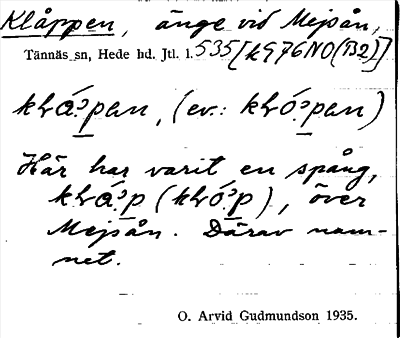 Klåppen, änge vid Mejsån,
Tännäs sn, Hede hd. Jtl. l. 535 [k976NO(732)]
(ev.:
Här har varit en spång,
över
Mejsån. Därav nam-
net.
O. Arvid Gudmundson 1935.